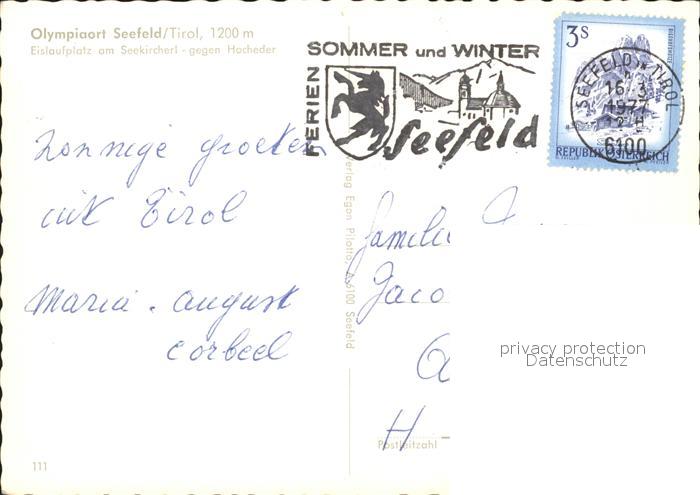 Olympiaort Seefeld/Tirol, 1200 m
Eislaufplatz am Seekircherl - gegen Hocheder
SOMMER und WINTER
FERIEN
Seefeld
3 S
SEEFELD TIROL
16.3.
6100
REPUBLIK ÖSTERREICH
zonnige groeten
uit Tirol
Maria. August
Corbeel
Verlag Egon Pilotto, A-6100 Seefeld
Familie
Jaco
H
Postleitzahl
privacy protection
Datenschutz
111